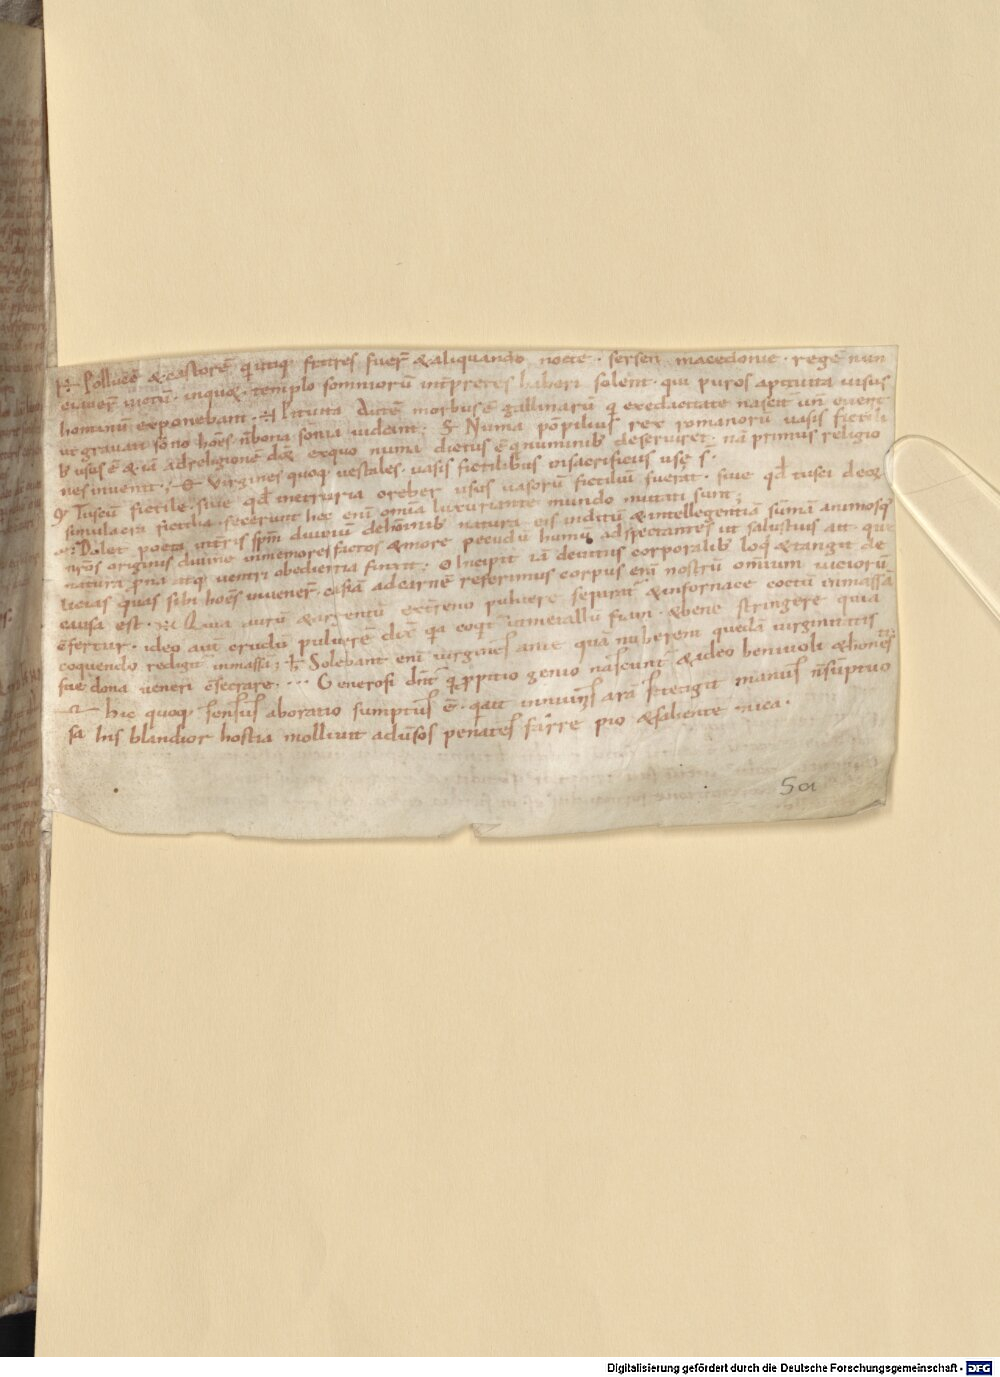 Pollucē & castorē q utiq; fratres fuer̄ & aliquando nocte · sersen macedonie · regē nun
ciauer̄ uictū · inquo&· templo somniorū int̄pretes haberi solent · qui puros apituita uisus
hominū exponebant · Pituita Autē morbus ē gallinarū q̄ exedacitate nascit̄ un̄ euenit
ut grauati sōno hoēs n̄ bona sōnia uideant; Numa pōpilius rex romanorū uasis fictili
b; usus ē & iā ad religionē dix̄ exquo numa dictus ē q̄ numinib; deseruiret · nā primus religio
nes inuenit; Virgines quoq; uestales · uasis fictilibus insacrificiis usę s̄·
Tuscū fictile · siue qd̄ inetruria creber usus uasorū fictiliū fuerat · siue qd̄ tusci deoꝝ
simulacra fictilia · fecerunt hec enī om̄ia luxuriante mundo mutati sunt;
Dolet poeta int̄ris sp̄m diuinū dehōinib; natura eis inditū & intellegentiā sūmā animosq;
nrōs originis diuine inmemores factos & more pecudū humū adspectantes ut salustius ait · que
natura prona atq; uentri obedientia finxit; Incipit iā deuitiis corporalib; loq̄ & tangit de
licias quas sibi hoēs inuener̄ · castā adcarnē referimus corpus enī nostrū omium uiciorū
causa est · Quia aurū & argentū extreno puluere separat̄ & infornace coctū inmassā
c̄fertur · ideo aut̄ crudū puluerē dix̄ q̄a coqt̄ iametallū fiun̄ · & bene stringere quia
coquendo redigit inmassā; Solebant enī uirgines ante quā nuberent quedā uirginitatis
sue dona ueneri c̄secrare · Generosi dn̄t q̄ ppitio genio nascunt̄ & ideo beniuoli & honesti
Hic quoq; sensus aboratio sumptus ē · q̄ ait inmunis arā si tetigit manus n̄ sūptuo
sa his blandior hostia molliuit aduersos penates farre pio & saliente mica·
5a
Digitalisierung gefördert durch die Deutsche Forschungsgemeinschaft - DFG